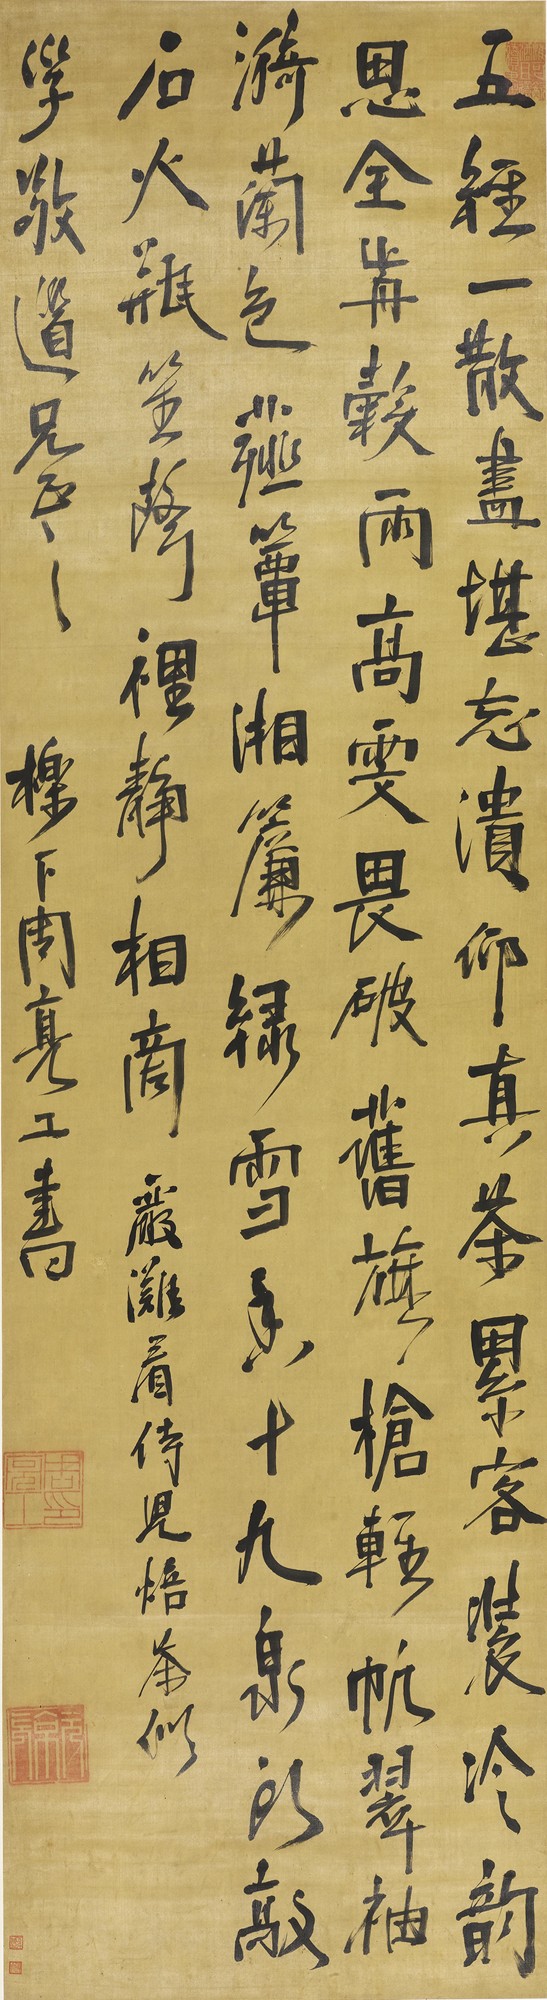 五經一散盡堪忘潰仰真茶累客裝冷韻
思全歬穀雨高雯畏破舊旗槍輕帆翠袖
漪蘭色蘄簟湘簾綠雪香十九泉所敲
石火瓶笙聲裡靜相商 嚴灘看侍兒焙茶似
學敬道兄正之 櫟下周亮工書